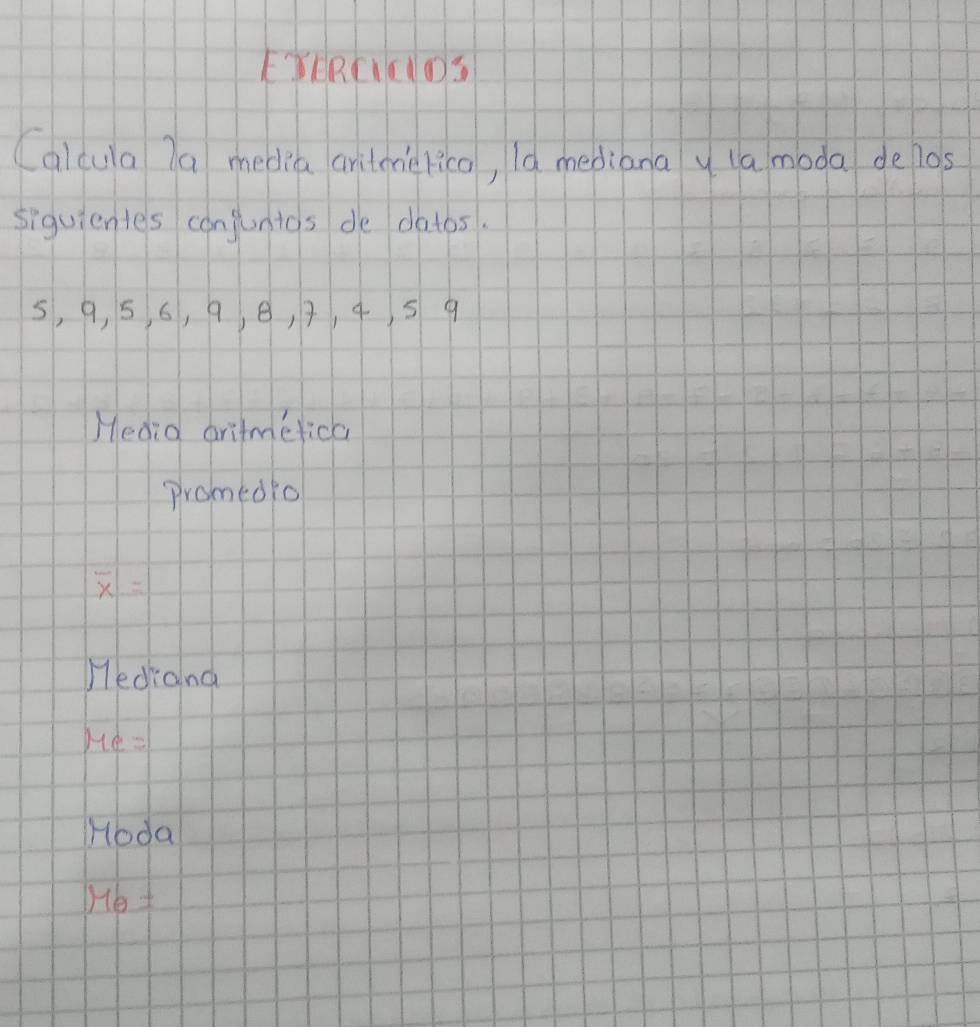 EJERCICIOS
Calcula la media aritmética, la mediana y la moda de los
siguientes conjuntos de datos.
5, 9, 5, 6, 9, 8, 7, 4, 5 9
Media aritmética
Promedio
x̅ =
Mediana
Me =
Moda
Mo =